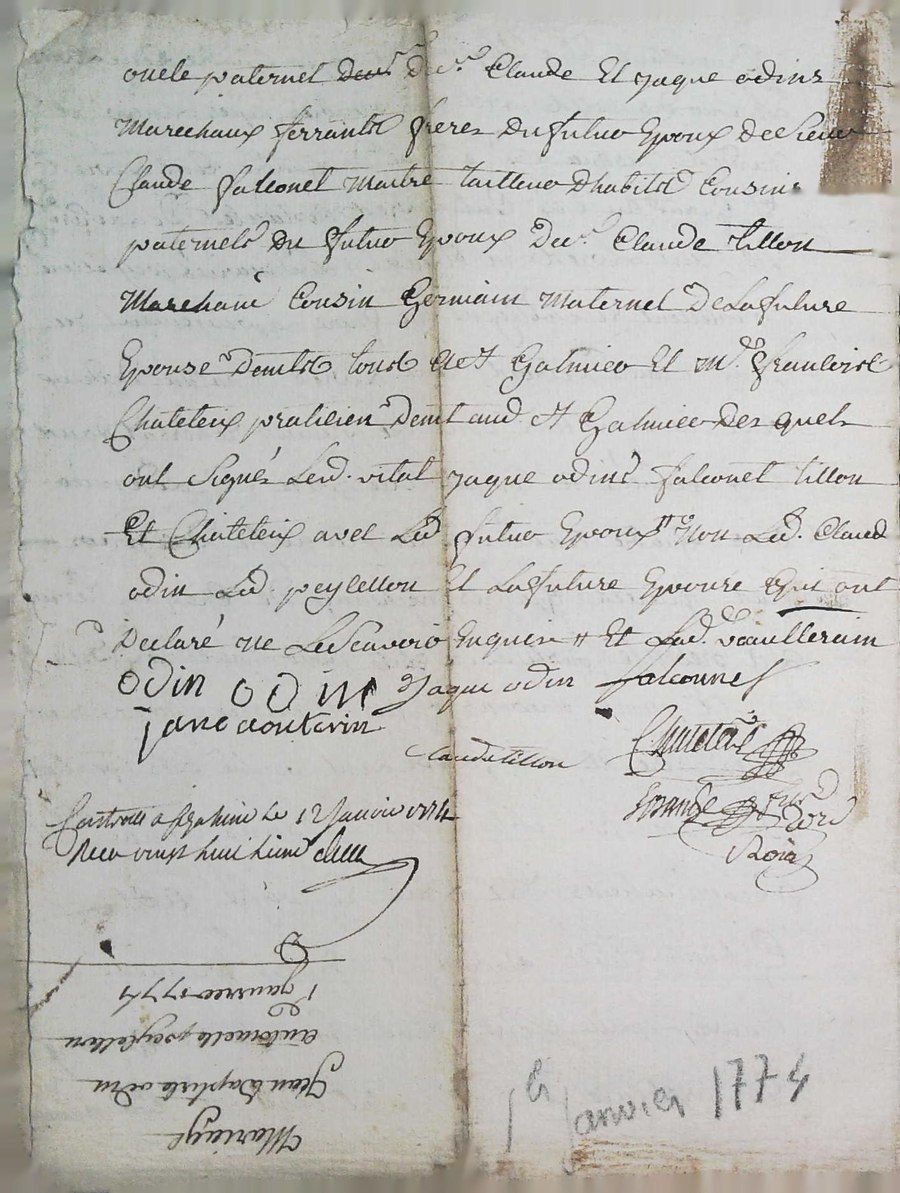 oncle paternel de sr. Claude Et jaque odins
Marechaux ferrants freres du futur Epoux de sieur
Claude falconet Maitre tailleur dhabits Cousins
paternels du futur Epoux de sr. Claude tillon
Marchand Cousin Germain Maternel de La future
Epouse demts tous a St Galmier Et me. françois
Chateteix praticien demt aud. St Galmier des quels
ont signés Led. vital jaque odins falconet tillon
Et Chateteix avec Led. futur Epoux non Led. Claud
odin Led. peycellon Et La future Epouse qui ont
Declaré ne Le Scavoir Enquis Et Lad.
odin odin Jaque odin falconnet
Claude tillon Chateteix
Controllé a St galmier Le 12 Janvier 1774
Reçu vingt huit
Roial
Mariage
Jean Baptiste odin
antoinette peycellon
1r janvier 1774
1er Janvier 1774